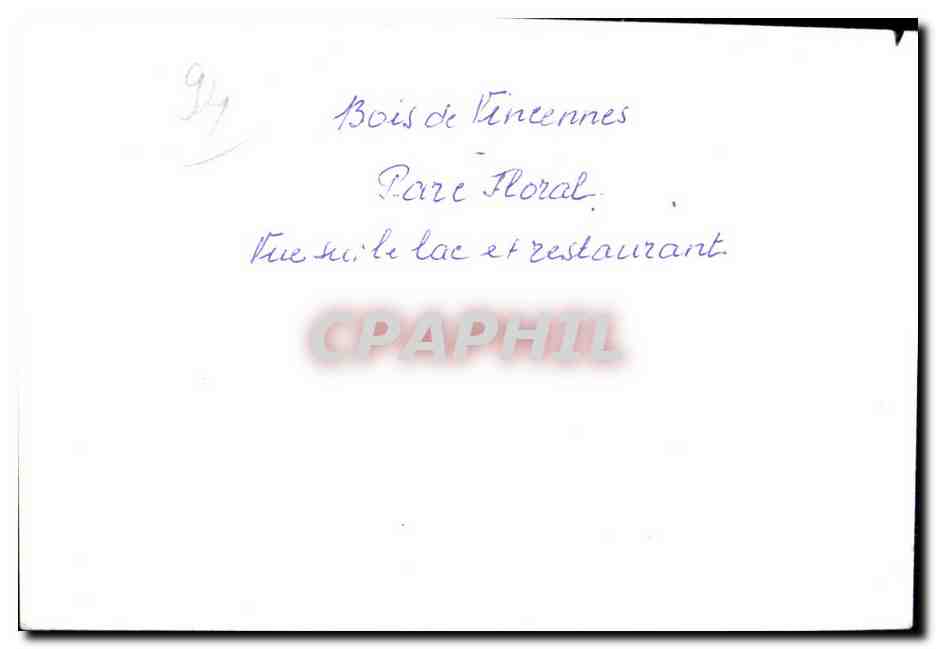 94
Bois de Vincennes
-
Parc Floral.
Vue sur le lac et restaurant
CPAPHIL